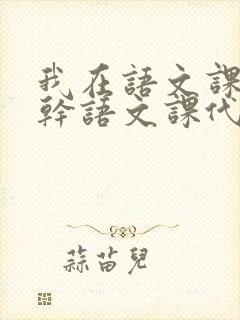 我在語文課
幹語文課代
蒜苗兒